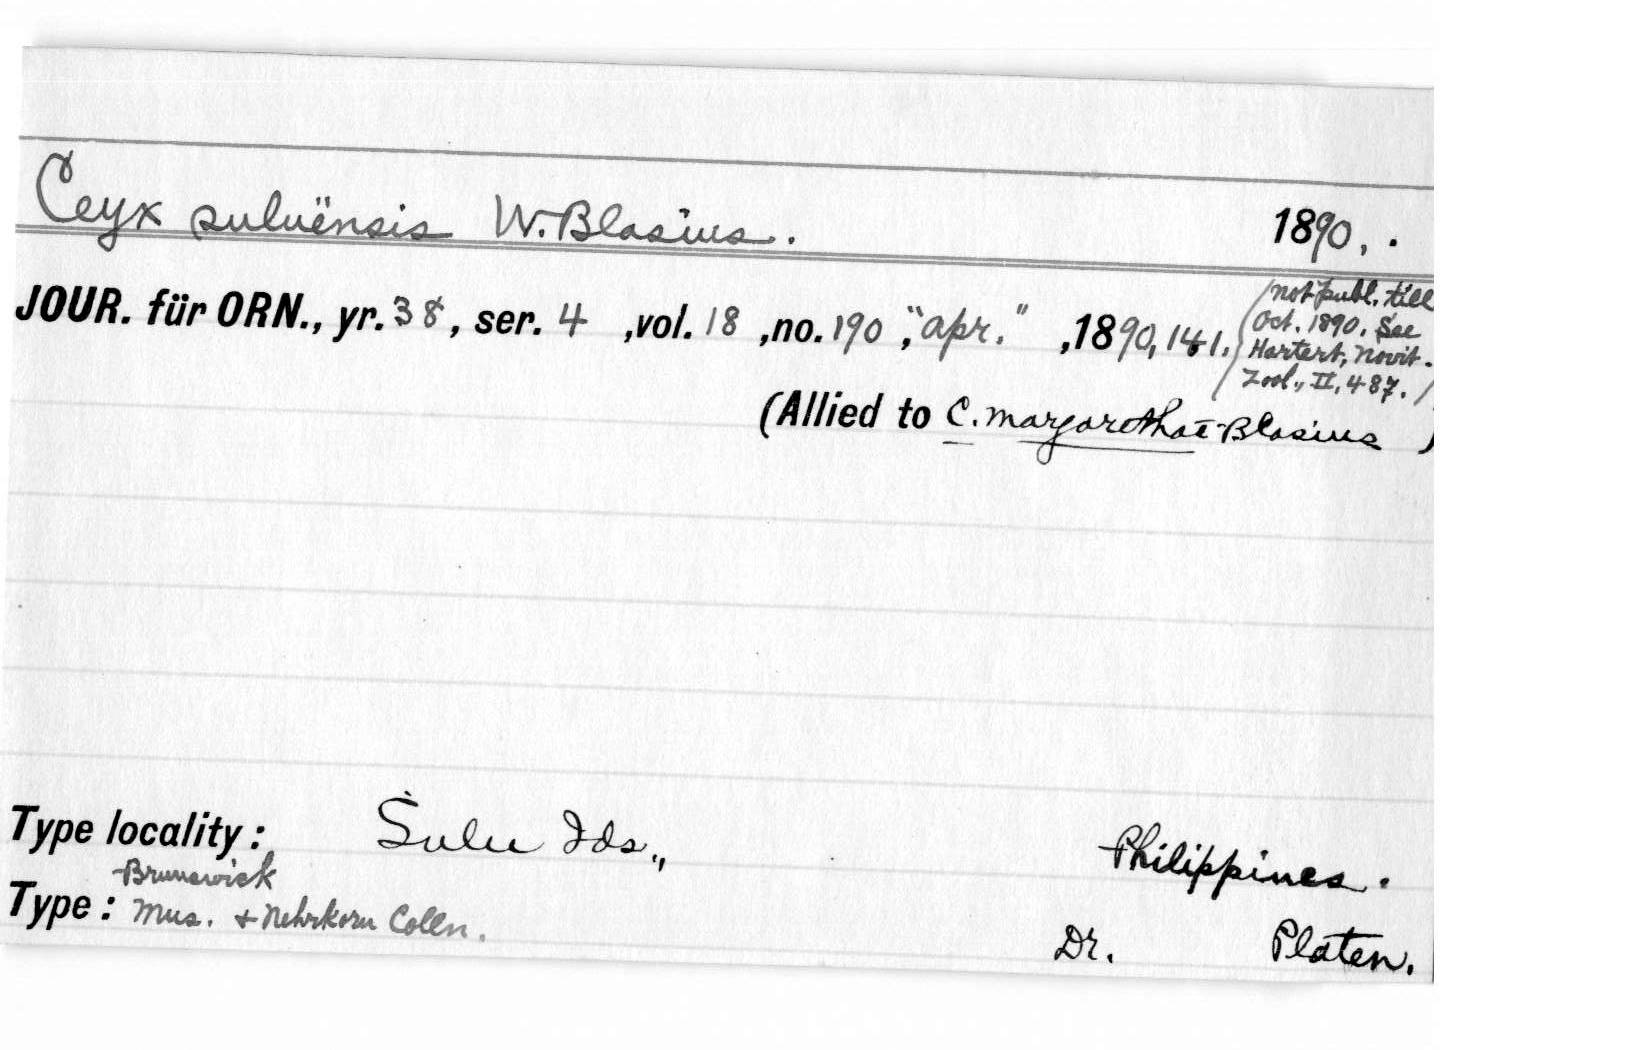 Ceyx suluënsis W. Blasius. 1890, .
JOUR. für ORN., yr. 38, ser. 4 ,vol. 18 ,no. 190 ,"apr." ,1890, 141. (not publ. till
Oct. 1890. See
Hartert, Novit.
Zool., II, 487.)
(Allied to C. margarethae Blasius )
Type locality: Sulu Ids., Philippines.
Brunswick
Type: Mus. + Nehrkorn Colln. Dr. Platen.